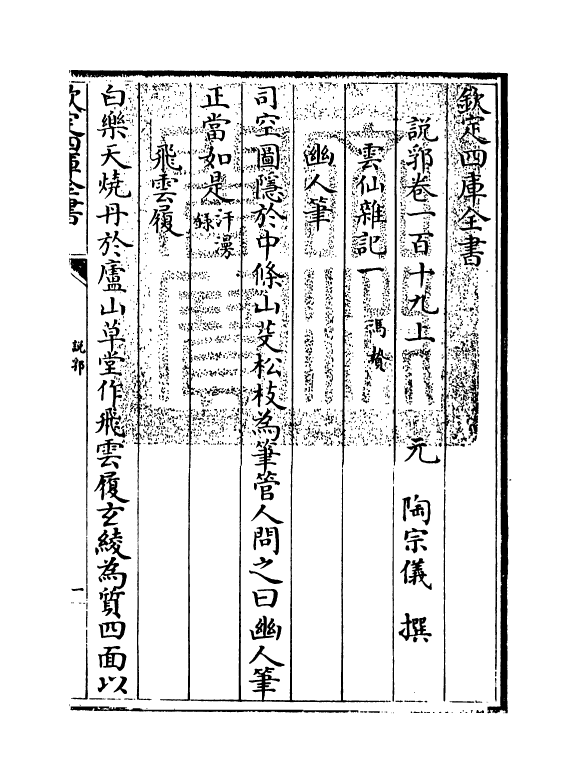 欽定四庫全書
説郛卷一百十九上　元　陶宗儀　撰
雲仙雜記一　馮贄
幽人筆
司空圖隱於中條山芟松枝為筆管人問之曰幽人筆
正當如是汗漫錄
飛雲履
白樂天燒丹於廬山草堂作飛雲履玄綾為質四面以
欽定四庫全書
説郛
一